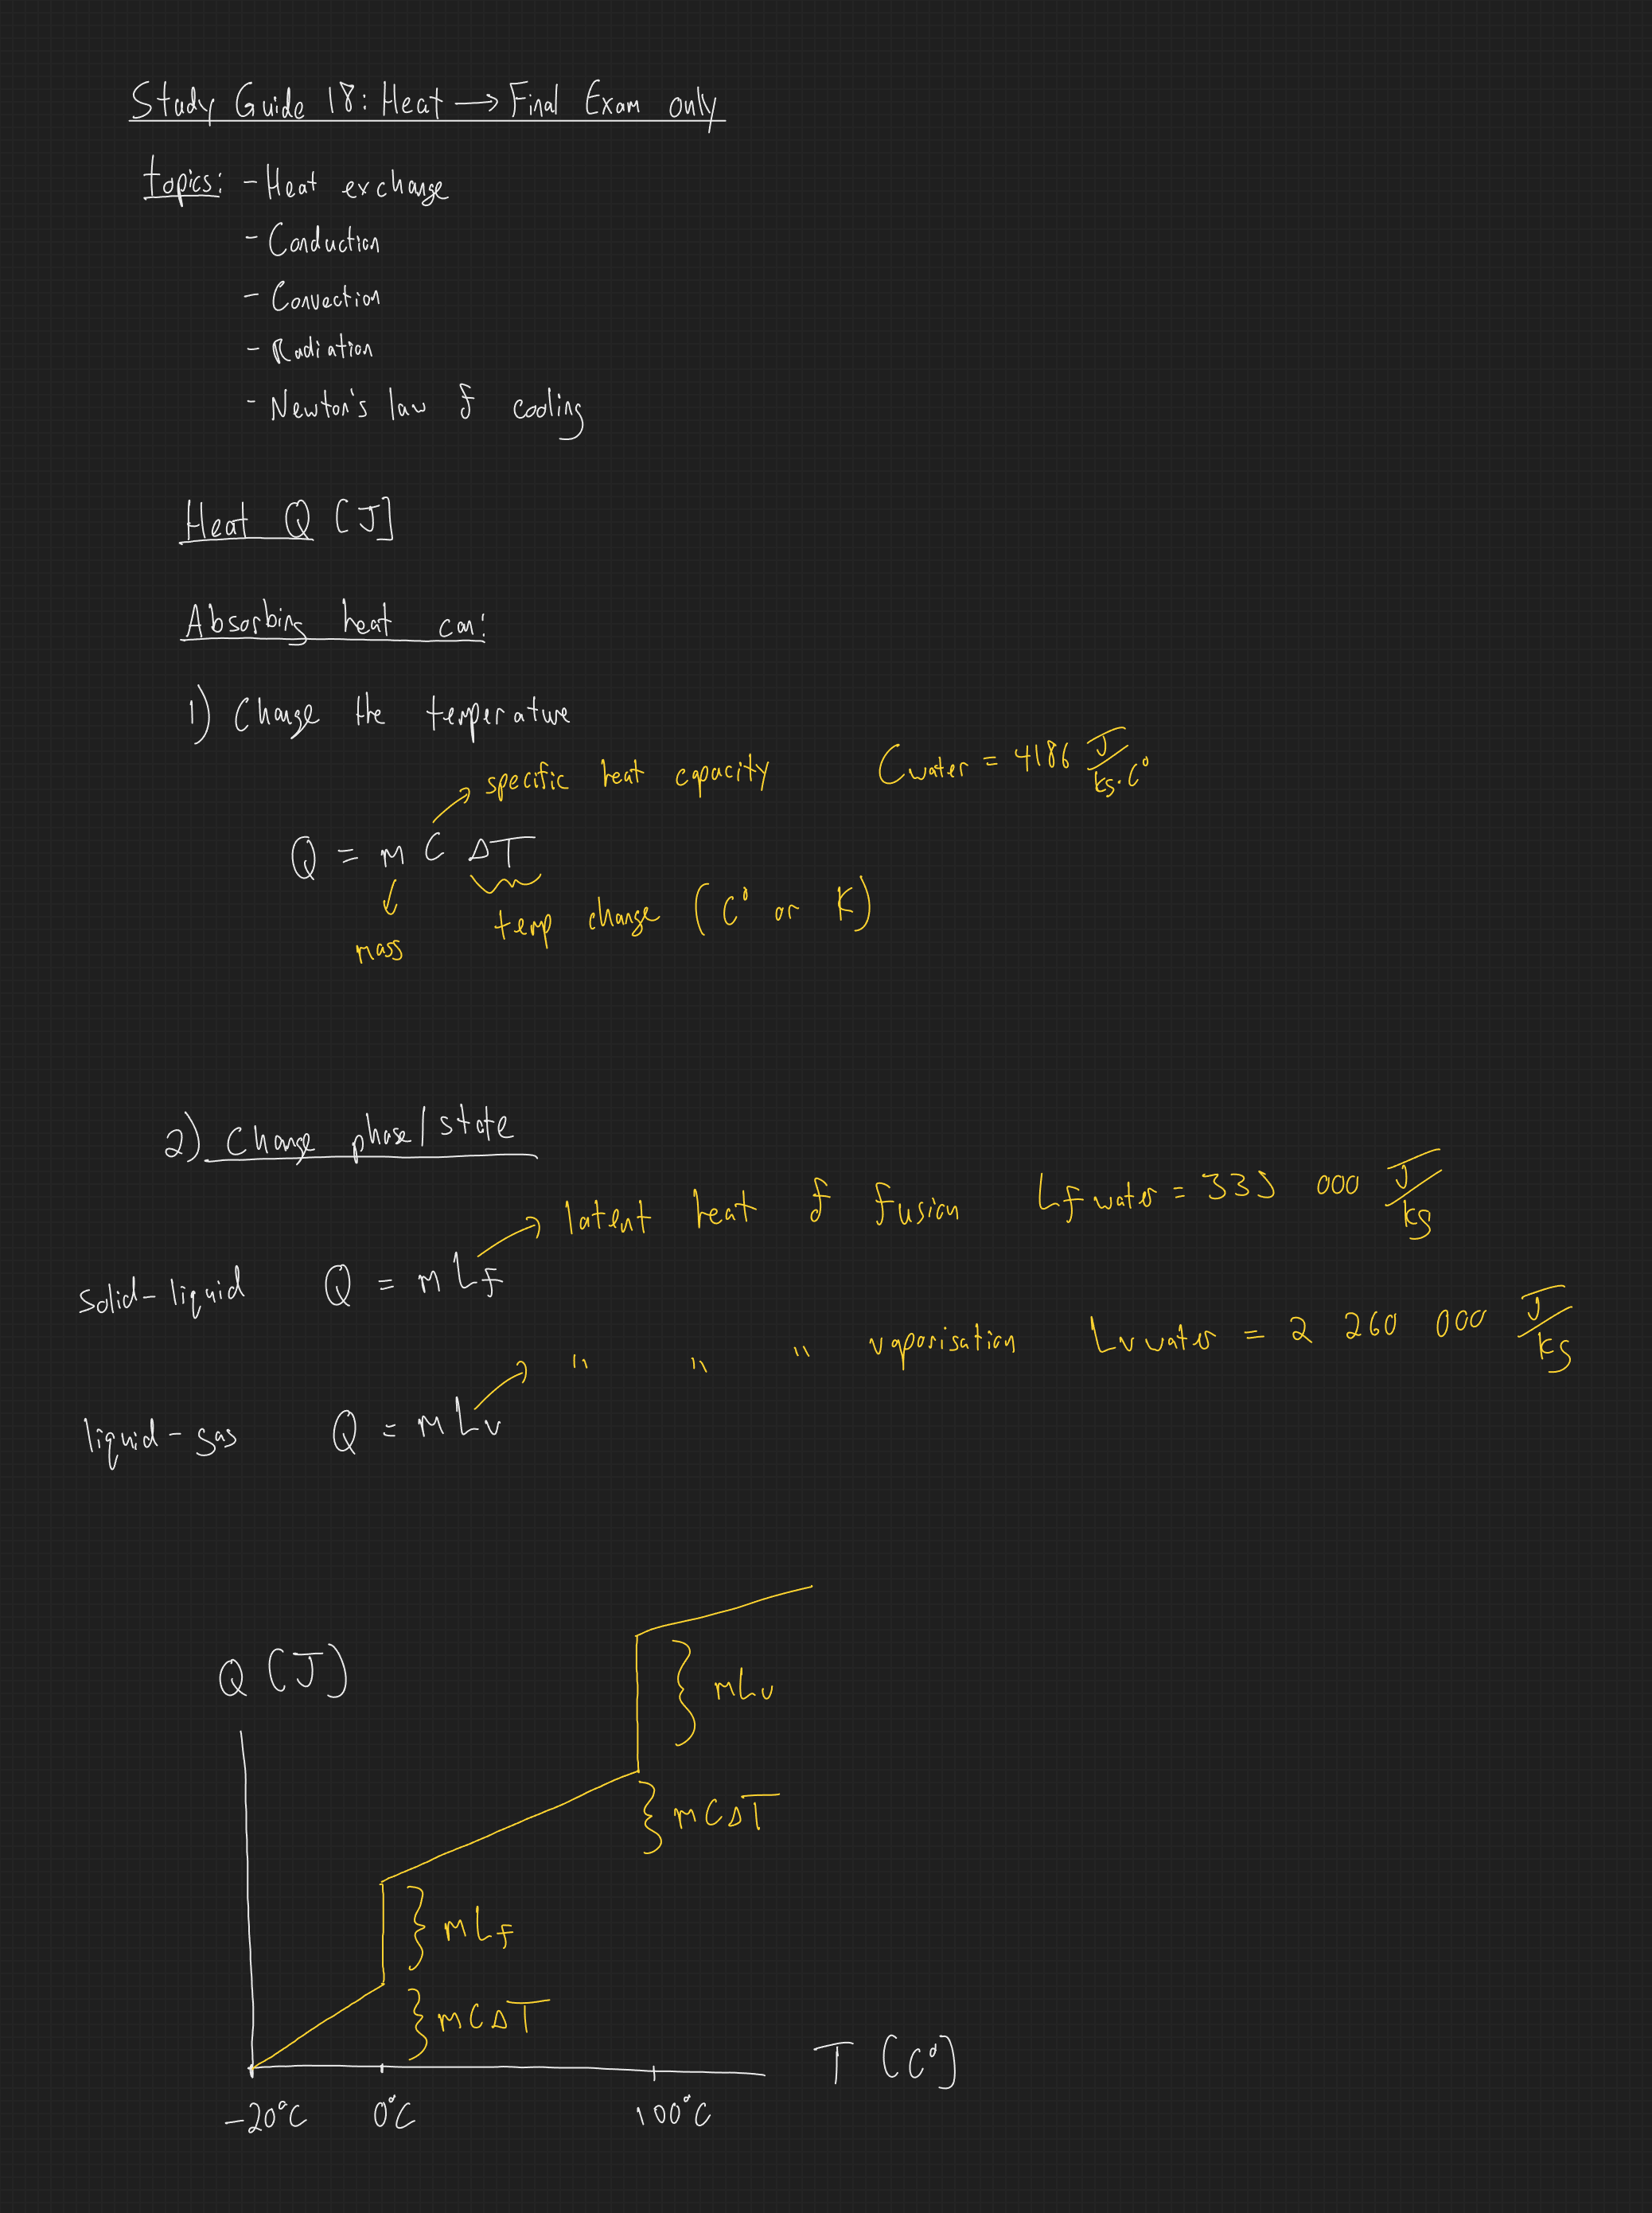 Study Guide 18: Heat → Final Exam only
topics: - Heat exchange
- Conduction
- Convection
- Radiation
- Newton's law of cooling
Heat Q [J]
Absorbing heat can:
1) Change the temperature
specific heat capacity C water = 4186 J/kg·C°
Q = m C ΔT
mass
temp change (C° or K)
2) Change phase/state
latent heat of fusion Lf water = 333 000 J/kg
solid-liquid Q = m Lf
" " " vaporisation Lv water = 2 260 000 J/kg
liquid-gas Q = m Lv
Q (J)
mLv
mCΔT
mLf
mCΔT
T (C°)
-20°C 0°C 100°C